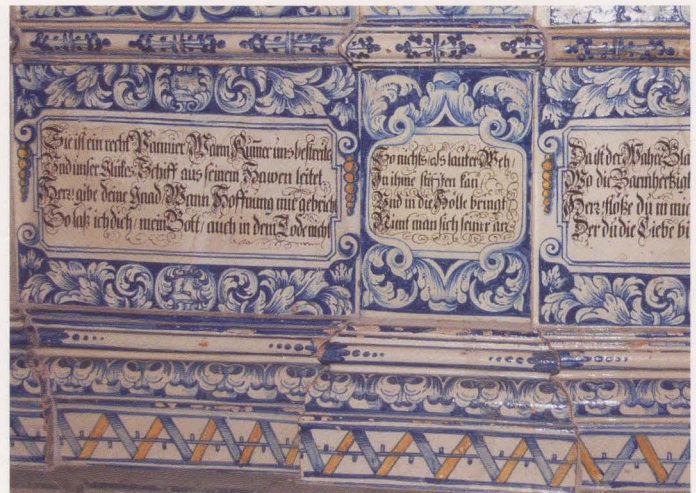 Sie ist ein recht Pannier, Wann Kum̃er uns bestreit,
Und unser Glükes Schiff aus seinem Hawen leitet
Herr, gibe deine Gnad, Wenn Hoffnung mir gebrich
So laß ich dich, mein Gott, auch in dem Tode nicht
So nichts, als lauter Weh,
In ihme stifften kan
Und in die Hölle bringt
Nim̃t man sich seiner an
Da ist der Wahre
Wo die Barmhertzigk
Herr, flöße du in mi
Der du die Liebe bi